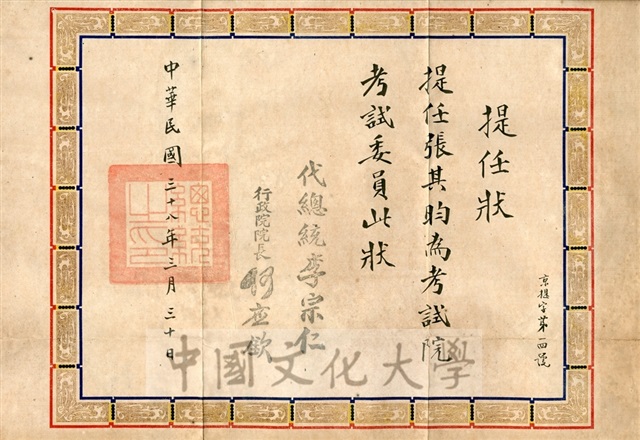 提任狀
提任張其昀為考試院
考試委員此狀
代總統李宗仁
行政院院長何應欽
中華民國三十八年三月三十日
京提字第一四號
中國文化大學